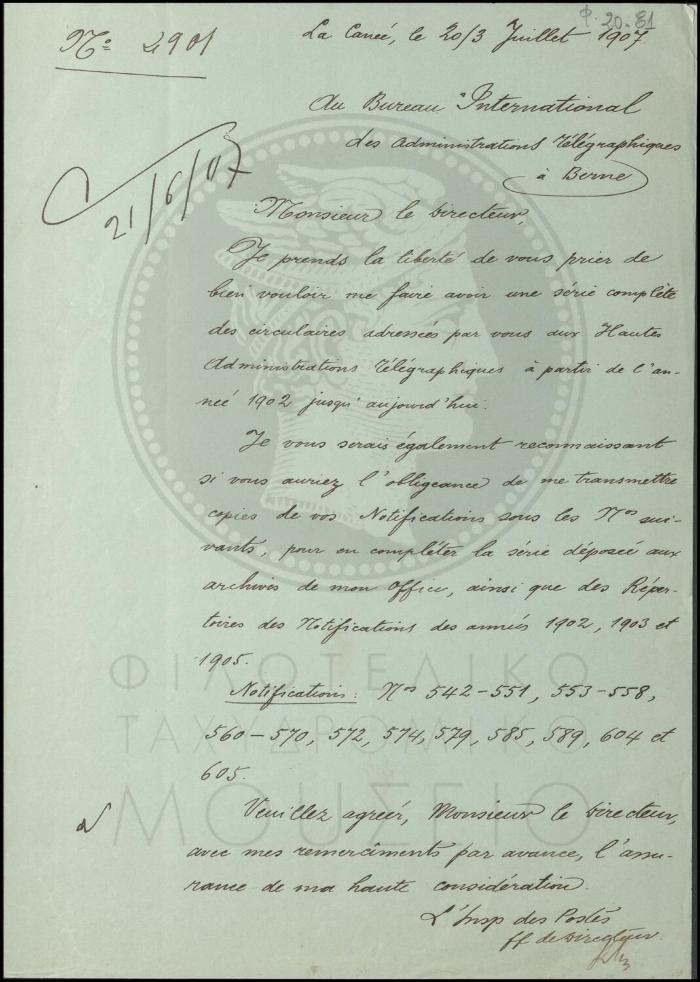 Φ. 20-81
Nº 2901
La Canée, le 20/3 Juillet 1907.
Au Bureau International
des Administrations Télégraphiques
à Berne
21/6/07
Monsieur le Directeur,
Je prends la liberté de vous prier de
bien vouloir me faire avoir une série complète
des circulaires adressées par vous aux Hautes
Administrations Télégraphiques à partir de l'an-
née 1902 jusqu'aujourd'hui.
Je vous serais également reconnaissant
si vous auriez l'obligeance de me transmettre
copies de vos Notifications sous les Nos sui-
vants, pour en compléter la série déposée aux
archives de mon Office, ainsi que des Réper-
toires des Notifications des années 1902, 1903 et
1905.
Notifications: Nos 542-551, 553-558,
560-570, 572, 574, 579, 585, 589, 604 et
605.
Veuillez agréer, Monsieur le Directeur,
avec mes remercîments par avance, l'assu-
rance de ma haute considération.
L'Insp des Postes
ff de Directeur
ΦΙΛΟΤΕΛΙΚΟ
ΤΑΧΥΔΡΟΜΙΚΟ
ΜΟΥΣΕΙΟ